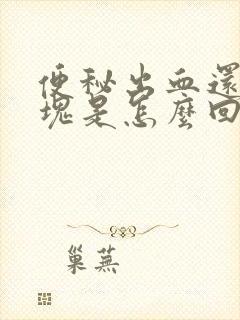 便秘出血還
塊是怎麼回
巢蕪